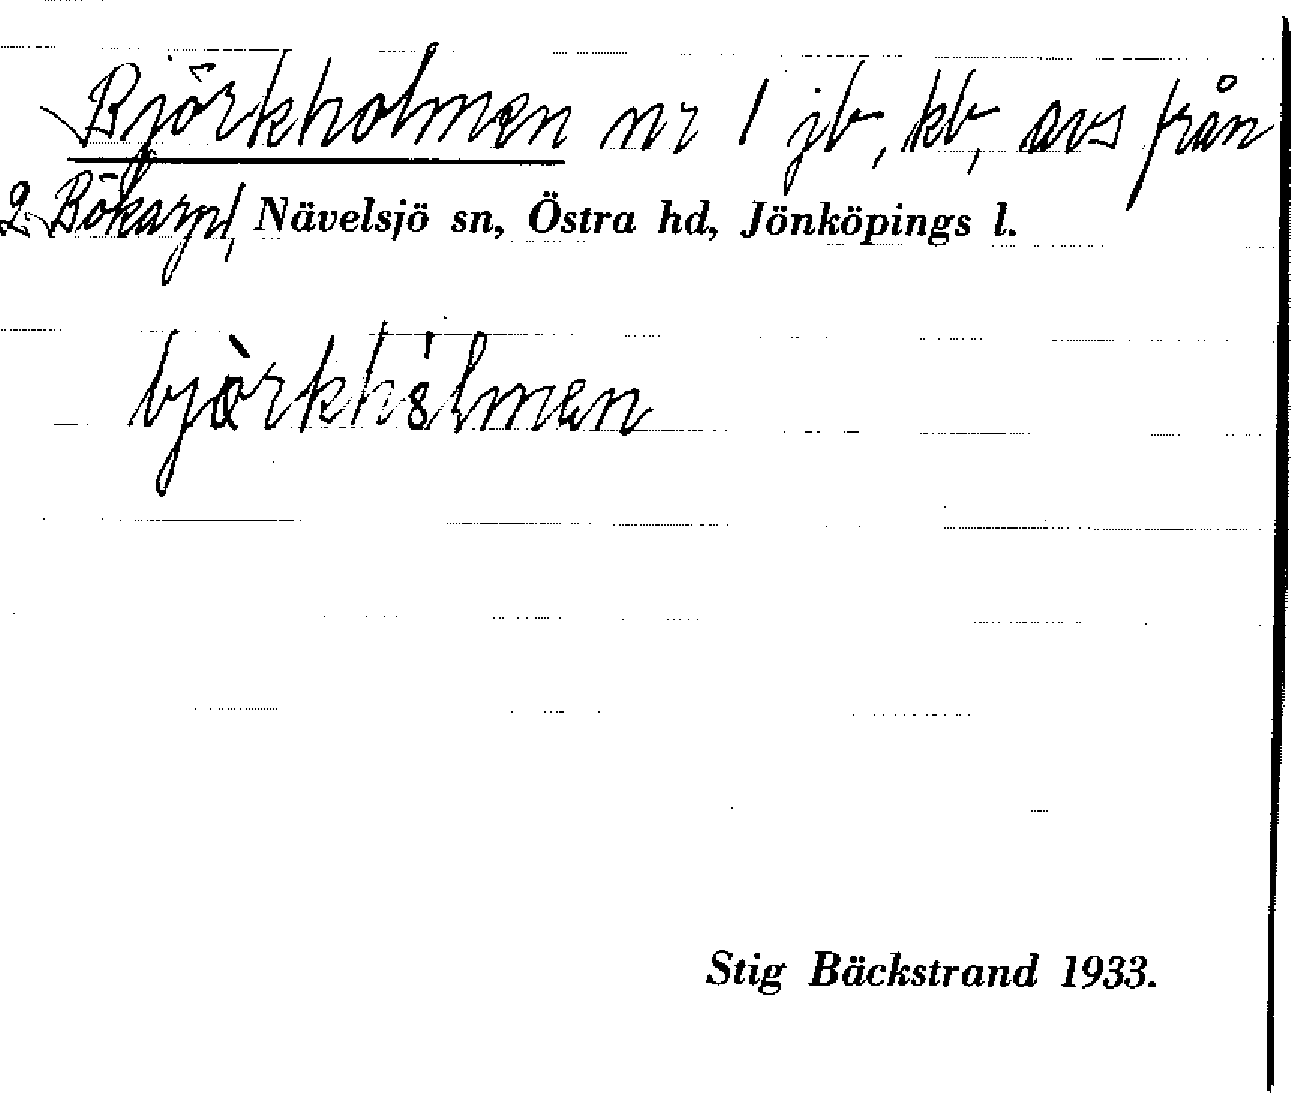 Björkholmen nr 1 jb, kb, avs från
2 Bökarp, Nävelsjö sn, Östra hd, Jönköpings l.
bjòrkhólmen
Stig Bäckstrand 1933.